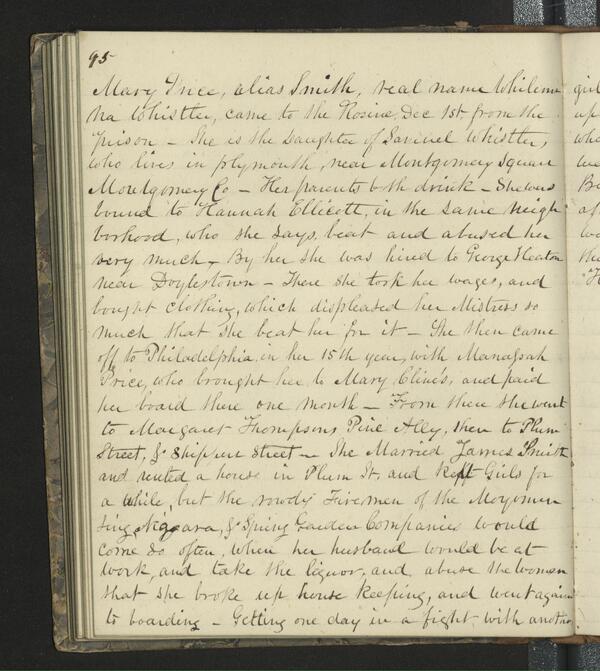 95
Mary Price, alias Smith, real name Whilemi
na Whistler, came to the Rosine, Dec 1st from the
Prison – She is the Daughter of Samuel Whistler,
who lives in Plymouth, near Montgomery Square
Montgomery Co – Her parents both drink – She was
bound to Hannah Ellicott, in the same neigh
borhood, who she says, beat and abused her
very much – By her she was hired to George Heaton
near Doylestown – There she took her wages, and
bought clothing, which displeased her Mistress so
much that she beat her for it – She then came
off to Philadelphia, in her 15th year, with Manassah
Price, who brought her to Mary Cline's, and paid
her board there one month – From there she went
to Margaret Thompsons Pine Ally, then to Plum
Street, & Shippen Street – She Married James Smith
and rented a house in Plum St, and kept Girls for
a while, but the rowdy Firemen of the Moyamen
sing, Niagara, & Spring Garden Companies would
come so often, when her husband would be at
work, and take the liquor, and abuse the women
that she broke up house keeping, and went again
to boarding – Getting one day in a fight with another